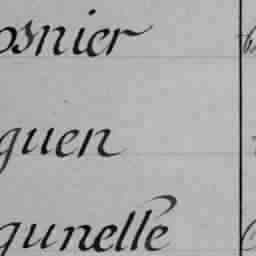 osnier
guen
gunelle